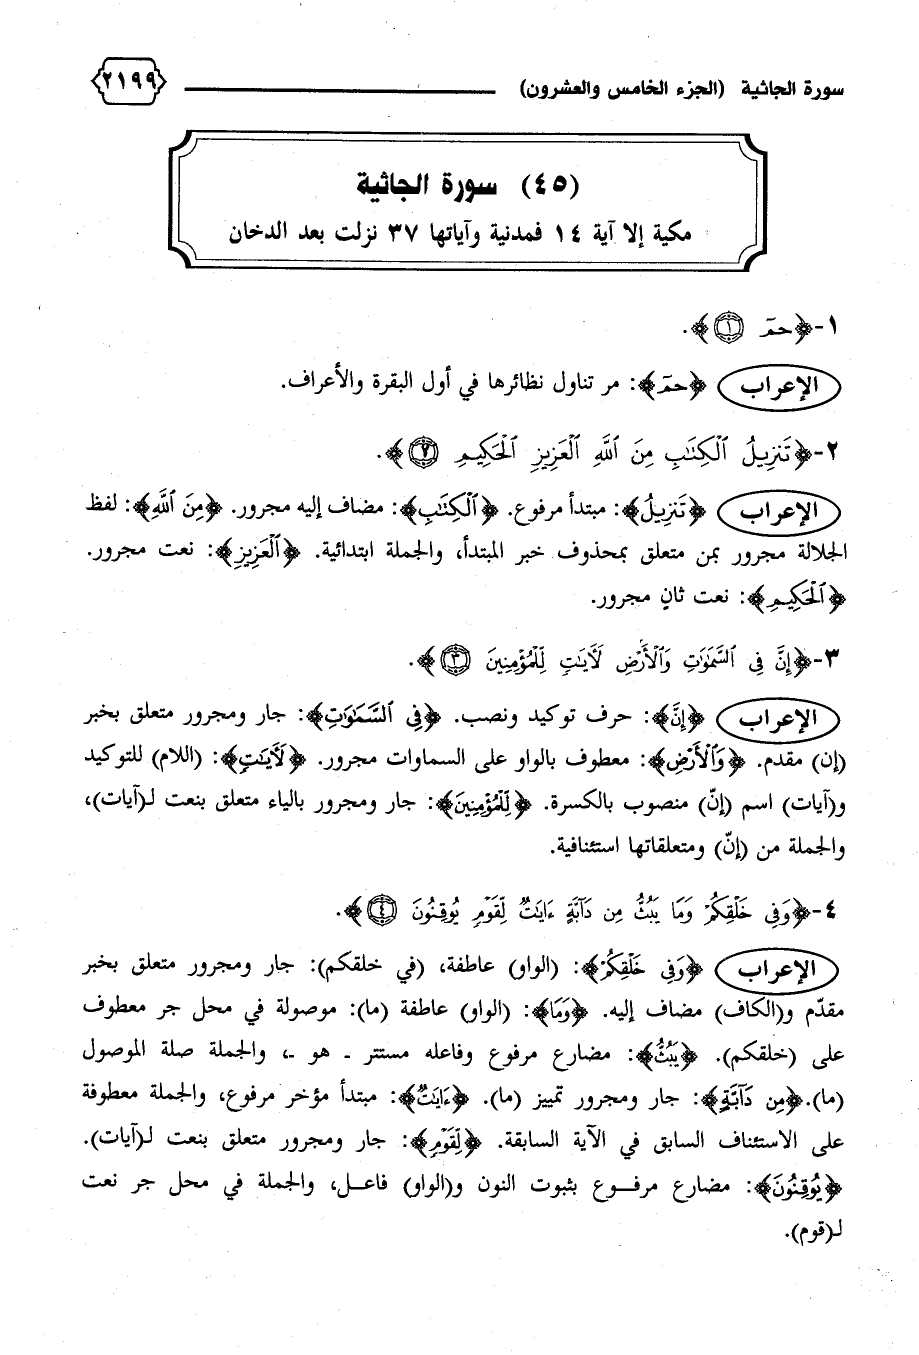 سورة الجاثية (الجزء الخامس والعشرون)
٢١٩٩
(٤٥) سورة الجاثية
مكية إلا آية ١٤ فمدنية وآياتها ٣٧ نزلت بعد الدخان
١-﴿حمٓ ١﴾.
الإعراب ﴿حمٓ﴾: مر تناول نظائرها في أول البقرة والأعراف.
٢-﴿تَنزِيلُ ٱلْكِتَـٰبِ مِنَ ٱللَّهِ ٱلْعَزِيزِ ٱلْحَكِيمِ ٢﴾.
الإعراب ﴿تَنزِيلُ﴾: مبتدأ مرفوع. ﴿ٱلْكِتَـٰبِ﴾: مضاف إليه مجرور. ﴿مِنَ ٱللَّهِ﴾: لفظ
الجلالة مجرور بمن متعلق بمحذوف خبر المبتدأ، والجملة ابتدائية. ﴿ٱلْعَزِيزِ﴾: نعت مجرور.
﴿ٱلْحَكِيمِ﴾: نعت ثانٍ مجرور.
٣-﴿إِنَّ فِى ٱلسَّمَـٰوَٰتِ وَٱلْأَرْضِ لَـَٔايَـٰتٍ لِّلْمُؤْمِنِينَ ٣﴾.
الإعراب ﴿إِنَّ﴾: حرف توكيد ونصب. ﴿فِى ٱلسَّمَـٰوَٰتِ﴾: جار ومجرور متعلق بخبر
(إن) مقدم. ﴿وَٱلْأَرْضِ﴾: معطوف بالواو على السماوات مجرور. ﴿لَـَٔايَـٰتٍ﴾: (اللام) للتوكيد
و(آيات) اسم (إنّ) منصوب بالكسرة. ﴿لِّلْمُؤْمِنِينَ﴾: جار ومجرور بالياء متعلق بنعت لـ(آيات)،
والجملة من (إنّ) ومتعلقاتها استئنافية.
٤-﴿وَفِى خَلْقِكُمْ وَمَا يَبُثُّ مِن دَآبَّةٍ ءَايَـٰتٌ لِّقَوْمٍ يُوقِنُونَ ٤﴾.
الإعراب ﴿وَفِى خَلْقِكُمْ﴾: (الواو) عاطفة، (في خلقكم): جار ومجرور متعلق بخبر
مقدّم و(الكاف) مضاف إليه. ﴿وَمَا﴾: (الواو) عاطفة (ما): موصولة في محل جر معطوف
على (خلقكم). ﴿يَبُثُّ﴾: مضارع مرفوع وفاعله مستتر ـ هو ـ، والجملة صلة الموصول
(ما).﴿مِن دَآبَّةٍ﴾: جار ومجرور تمييز (ما). ﴿ءَايَـٰتٌ﴾: مبتدأ مؤخر مرفوع، والجملة معطوفة
على الاستئناف السابق في الآية السابقة. ﴿لِّقَوْمٍ﴾: جار ومجرور متعلق بنعت لـ(آيات).
﴿يُوقِنُونَ﴾: مضارع مرفـوع بثبوت النون و(الواو) فاعـل، والجملة في محل جر نعت
لـ(قوم).